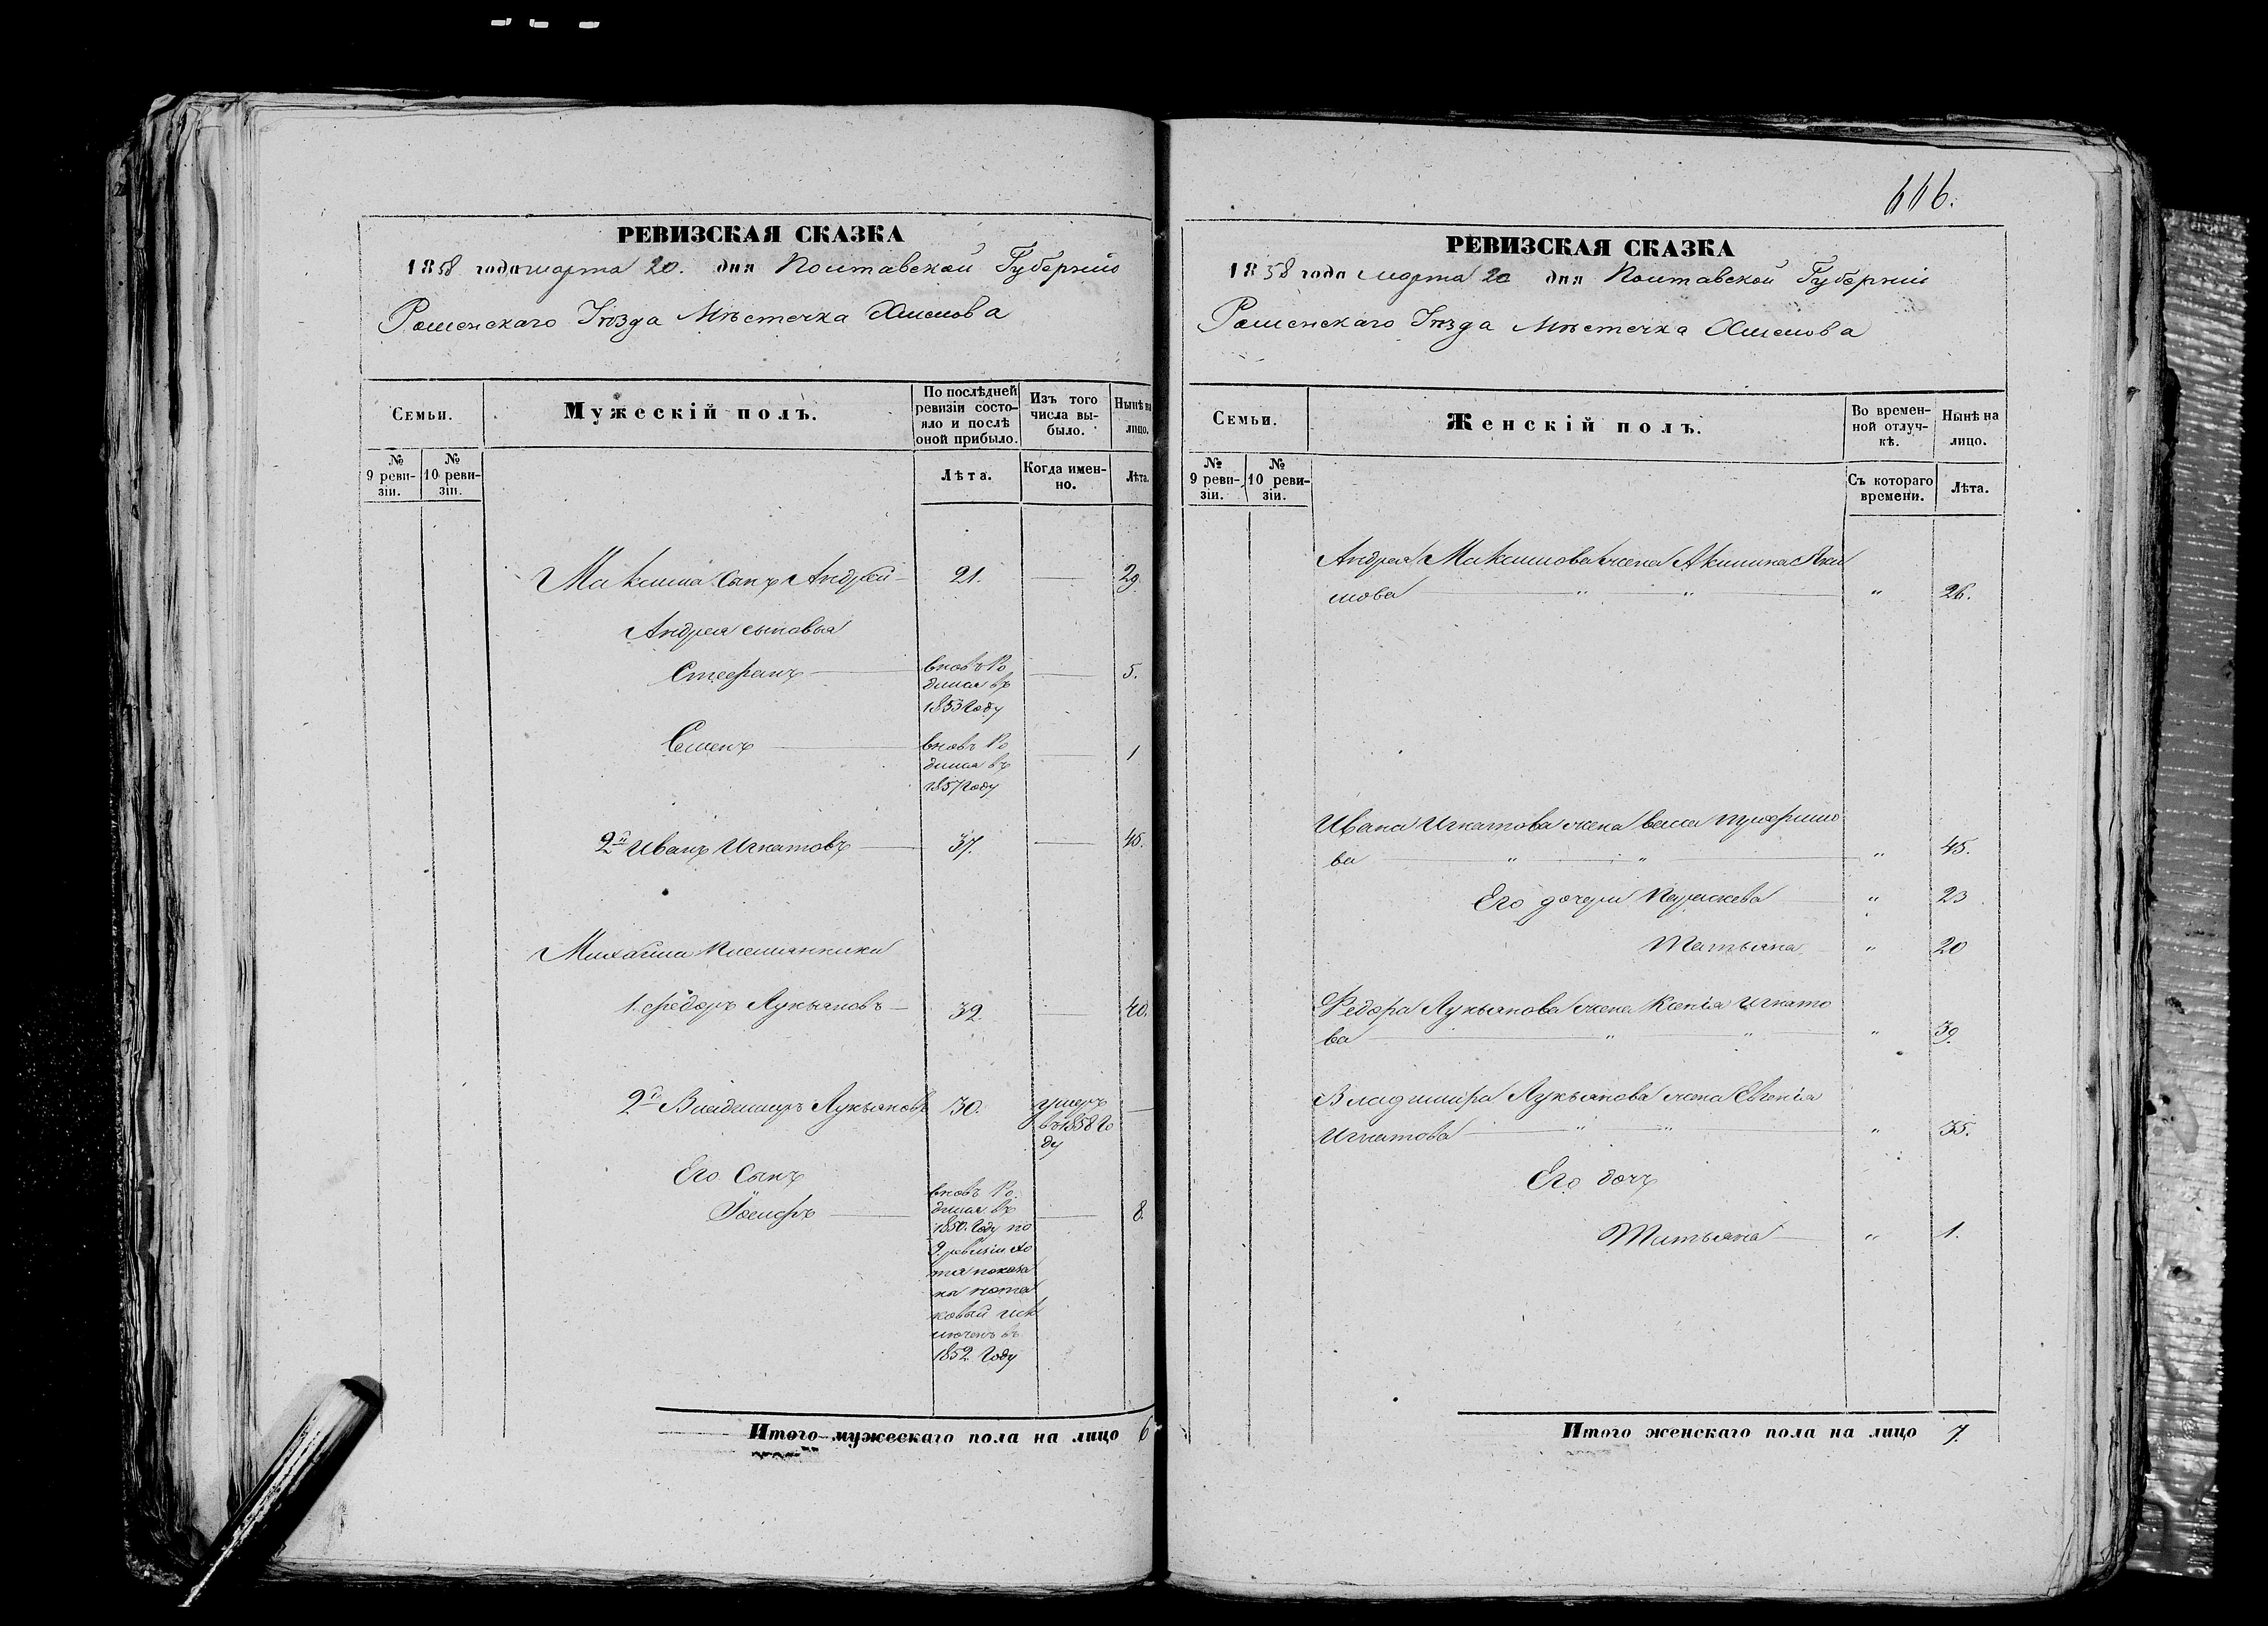 РЕВИЗСКАЯ СКАЗКА
1858 года марта 20. дня Полтавской Губерніи
Роменскаго Уѣзда Мѣстечка Хмелова
Семьи.
Мужескій полъ.
По послѣдней ревизіи состояло и послѣ оной прибыло.
Изъ того числа выбыло.
Нынѣ на лицо.
№ 9 ревизіи.
№ 10 ревизіи.
Лѣта.
Когда именно.
Лѣта.
Максима Сынъ Андрей 21. 29.
Андрея сыновья
Стефанъ вновь Ро 5.
дился въ
1853 Году
Семенъ вновь Ро 1
дился въ
1857 Году
2й Иванъ Игнатовъ 37. 45.
Михайла племянники
1. Федоръ Лукьяновъ 32. 40.
2й Владимиръ Лукьяновъ 30. умеръ
въ 1858 Го
ду
Его Сынъ
Іосифъ вновь Ро 8.
дился въ
1850. Году по
9. ревизіи хо
тя показа
но
ковый иск
люченъ въ
1852 Году
Итого мужескаго пола на лицо 6
666.
РЕВИЗСКАЯ СКАЗКА
1858 года марта 20 дня Полтавской Губерніи
Роменскаго Уѣзда Мѣстечка Хмелова
Семьи.
Женскій полъ.
Во временной отлучкѣ.
Нынѣ на лицо.
№ 9 ревизіи.
№ 10 ревизіи.
Съ котораго времени.
Лѣта.
Андрея Максимова жена Акилина Яки
мова " " " 26.
Ивана Игнатова жена
ва " " " 45.
Его дочери Параскева " 23
Татьяна " 20
Федора Лукьянова жена Ксенія Игнато
ва " " " 39.
Владимира Лукьянова жена Евгенія
Игнатова " " " 35.
Его дочь
Татьяна " 1.
Итого женскаго пола на лицо 7.